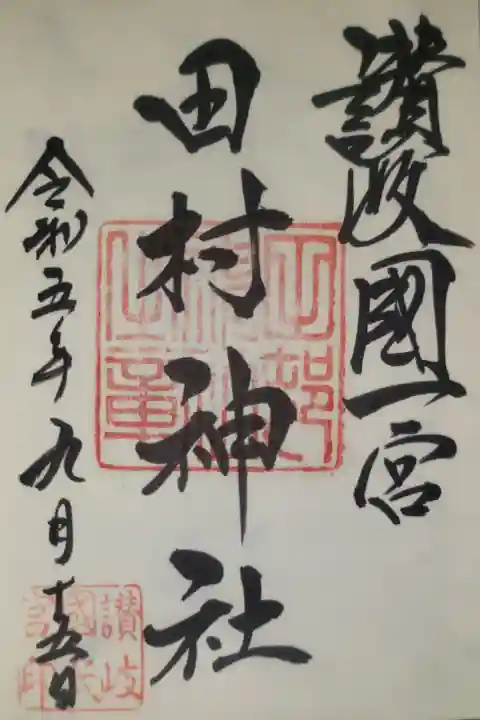 讃岐國一宮
田村神社
令和五年九月十五日